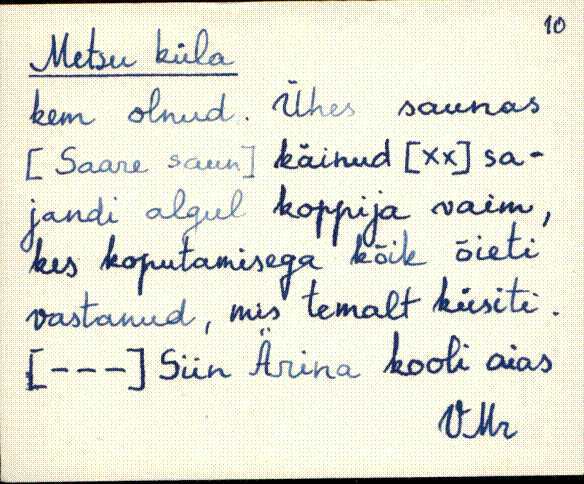 10
Metsu küla
kem olnud. Ühes saunas
[Saare saun] käinud [xx] sa-
jandi algul koppija vaim,
kes koputamisega kõik õieti
vastanud, mis temalt küsiti.
[---] Siin Ärina kooli aias
VMr